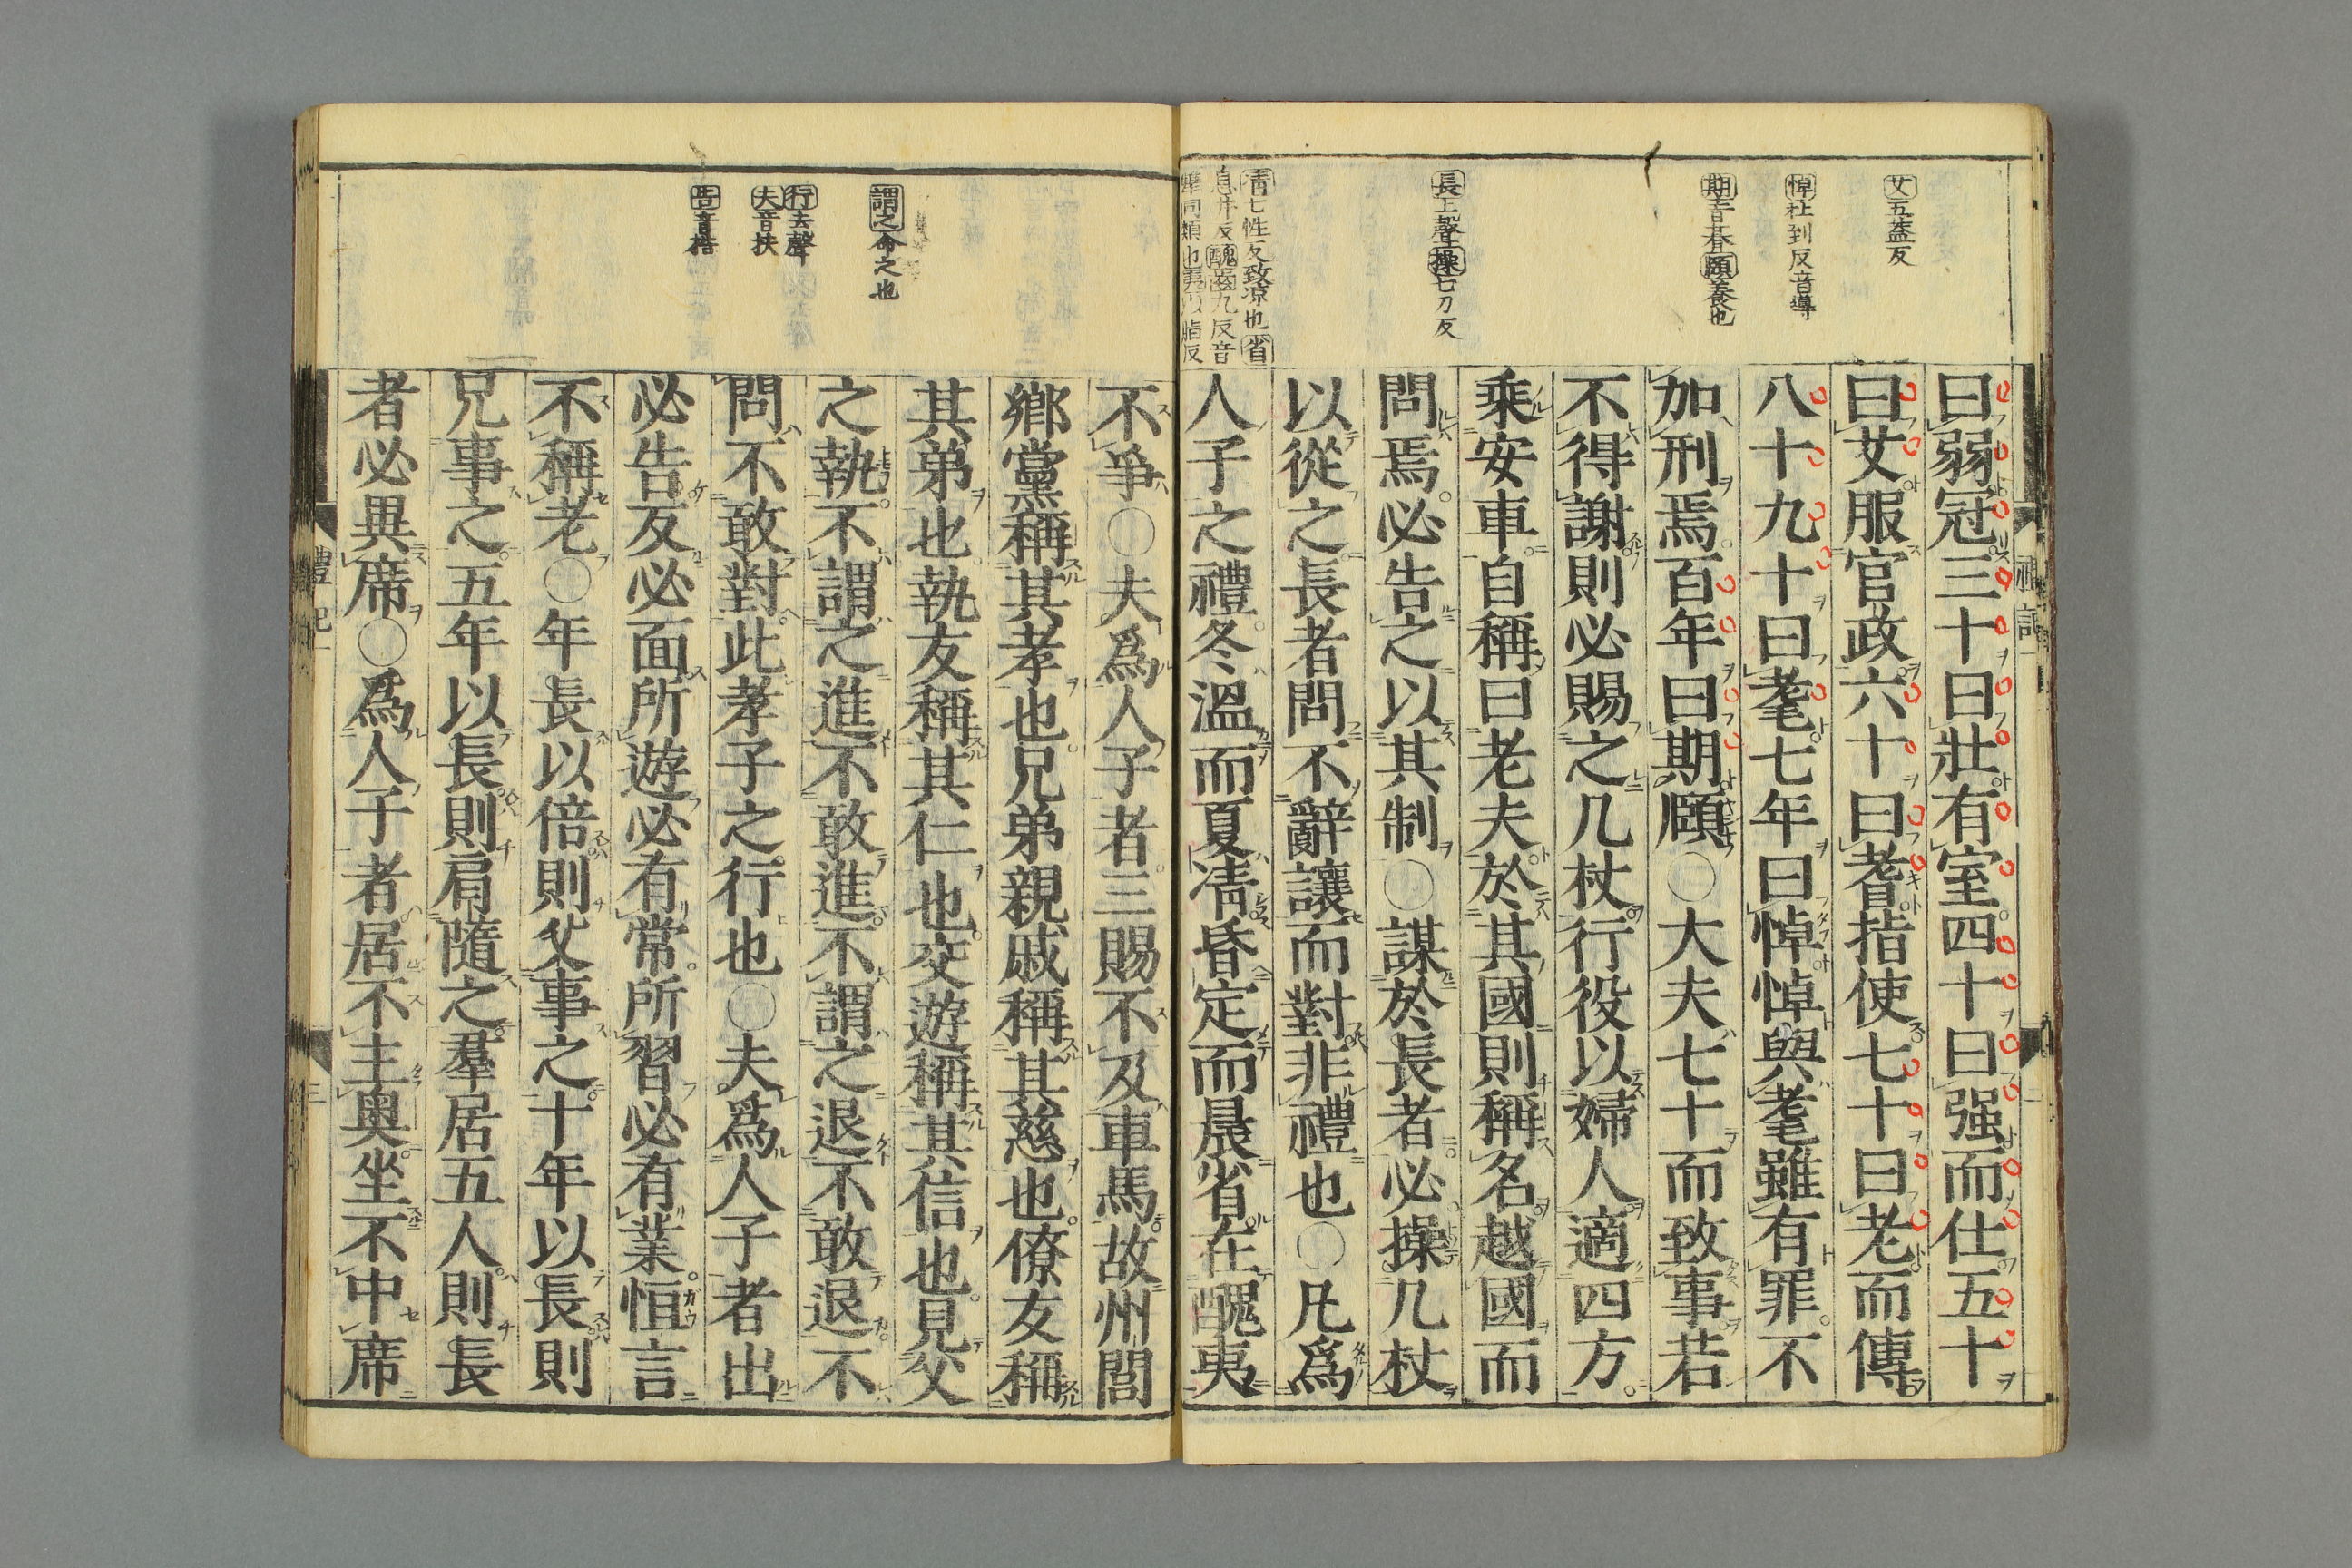 艾五蓋反
悼社到反音導
期音朞頤養也
長上聲操七刀反
凊七性反致凉也省
息井反醜齒九反音
同類也夷以脂反
曰弱冠三十曰壯有室四十曰强而仕五十
曰艾服官政六十曰耆指使七十曰老而傳
八十九十曰耄七年曰悼悼與耄雖有罪不
加刑焉百年曰期頤○大夫七十而致事若
不得謝則必賜之几杖行役以婦人適四方
乘安車自稱曰老夫於其國則稱名越國而
問焉必告之以其制○謀於長者必操几杖
以從之長者問不辭讓而對非禮也○凡爲
人子之禮冬溫而夏凊昏定而晨省在醜夷
謂之命之也
行去聲
夫音扶
告音梏
不爭○夫爲人子者三賜不及車馬故州閭
鄉黨稱其孝也兄弟親戚稱其慈也僚友稱
其弟也執友稱其仁也交遊稱其信也見父
之執不謂之進不敢進不謂之退不敢退不
問不敢對此孝子之行也○夫爲人子者出
必告反必面所遊必有常所習必有業恒言
不稱老○年長以倍則父事之十年以長則
兄事之五年以長則肩隨之羣居五人則長
者必異席○爲人子者居不主奧坐不中席
禮記一
三